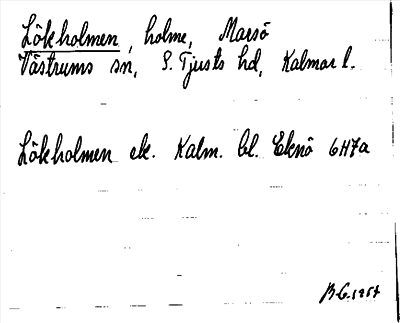 Lökholmen, holme, Marsö
Västrums sn, S. Tjusts hd, Kalmar l.
Lökholmen ek. Kalm. bl. Eknö 6H7a
B.G. 1967